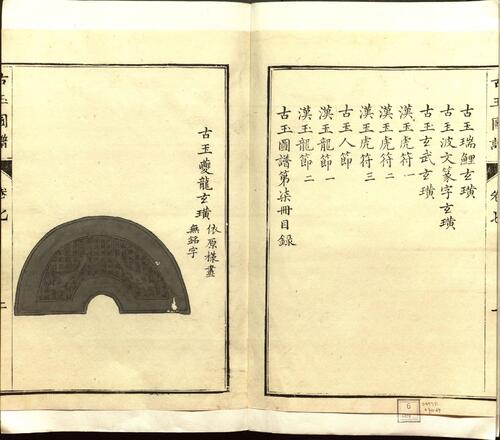 古玉圖譜
卷七
古玉瑞鯉玄璜
古玉波文篆字玄璜
古玉玄武玄璜
漢玉虎符一
漢玉虎符二
漢玉虎符三
古玉人節
漢玉龍節一
漢玉龍節二
古玉圖譜第柒冊目錄
古玉夔龍玄璜
依原樣畫
無銘字
古玉圖譜
卷七
二
6